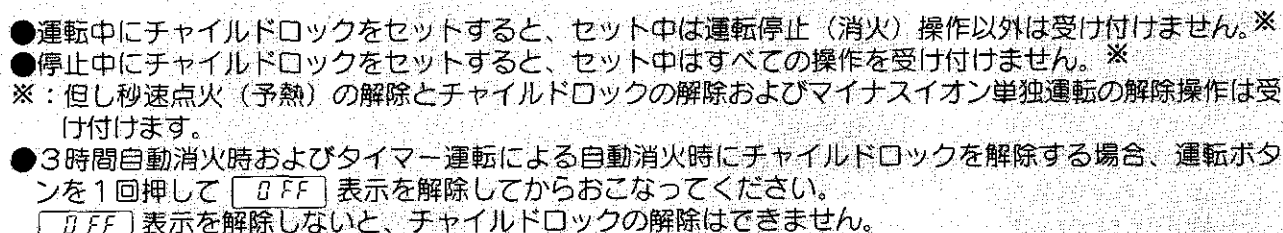 ●運転中にチャイルドロックをセットすると、セット中は運転停止（消火）操作以外は受け付けません。※
●停止中にチャイルドロックをセットすると、セット中はすべての操作を受け付けません。※
※：但し秒速点火（予熱）の解除とチャイルドロックの解除およびマイナスイオン単独運転の解除操作は受
け付けます。
●3時間自動消火時およびタイマー運転による自動消火時にチャイルドロックを解除する場合、運転ボタ
ンを1回押して OFF 表示を解除してからおこなってください。
OFF 表示を解除しないと、チャイルドロックの解除はできません。